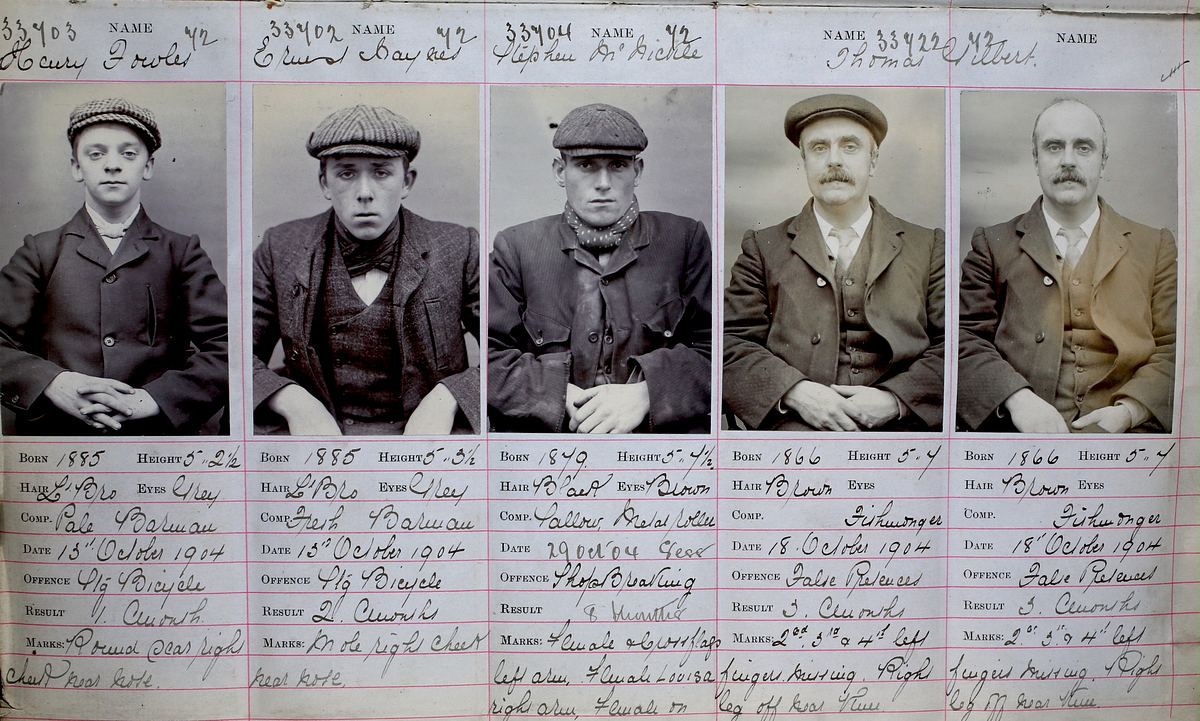 33403 NAME 42
Henry Fowles
Born 1885 Height 5"2½
Hair Lt Bro Eyes Grey
Comp. Pale Barman
Date 13" October 1904
Offence Stg Bicycle
Result 1. Cmonth.
Marks: Round scar right
cheek near nose.
33402 NAME 42
Ernest Haynes
Born 1885 Height 5"3½
Hair Lt Bro Eyes Grey
Comp. Fresh Barman
Date 13" October 1904
Offence Stg Bicycle
Result 2. Cmonths
Marks: Mole right cheek
near nose.
33404 NAME 42
Stephen McNickle
Born 1879. Height 5"7½
Hair Black Eyes Brown
Comp. Sallow, Metal roller
Date 29 Oct 04 Sess
Offence ShopBreaking
Result 8 months
Marks: Female & Crossflags
left arm, Female Louisa
right arm, Female on
NAME 33422 42 NAME
Thomas Gilbert.
Born 1866 Height 5"7
Hair Brown Eyes
Comp. Fishmonger
Date 18 October 1904
Offence False Pretences
Result 3. Cmonths
Marks: 2nd. 3rd & 4th left
fingers missing. Right
leg off near knee.
Born 1866 Height 5"7
Hair Brown Eyes
Comp. Fishmonger
Date 18" October 1904
Offence False Pretences
Result 3. Cmonths
Marks: 2" 3rd & 4" left
fingers missing. Right
leg off near knee.